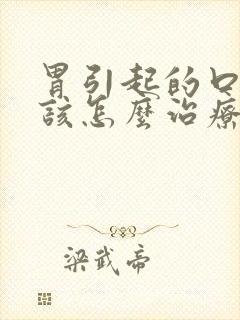 胃引起的口
該怎麼治療
梁武帝